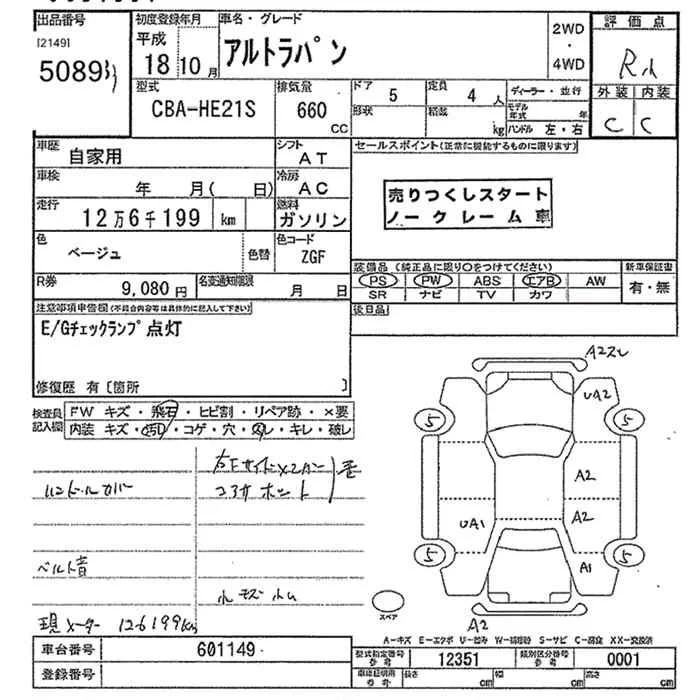 出品番号
[2149]
5089
初度登録年月
平成
18 10 月
車名・グレード
アルトラパン
2WD
・
4WD
評価点
外装 内装
C C
型式
CBA-HE21S
排気量
660
CC
ドア
5
定員
4 人
形状
積載
kg
ディーラー・並行
モデル年式 年
ハンドル 左・右
車歴
自家用
シフト
AT
車検
年 月( 日)
冷房
AC
走行
12万6千199 km
燃料
ガソリン
色
ベージュ
色替
色コード
ZGF
R券
9,080 円
名変通知期限
月 日
セールスポイント(正常に機能するものに限ります)
売りつくしスタート
ノークレーム車
装備品 (純正品に限り○をつけてください)
PS PW ABS エアB AW
SR ナビ TV カワ
新車保証書
有・無
後日品
注意事項申告欄(不具合内容等は具体的に記入して下さい)
E/Gチェックランプ点灯
修復歴 有〔箇所 〕
検査員記入欄
FW キズ・飛石・ヒビ割・リペア跡・×要
内装 キズ・汚れ・コゲ・穴・スレ・キレ・破レ
ハンドルカバー
ベルト音
現メーター 126199km
A2
UA2
5
5
A2
A2
UA1
A1
5
5
A2
スペア
A-キズ E-エクボ U-凹み W-補修跡 S-サビ C-腐食 XX-交換済
車台番号
601149
登録番号
型式指定番号
参考
12351
類別区分番号
参考
0001
車庫証明用
参考
長さ cm
幅 cm
高さ cm